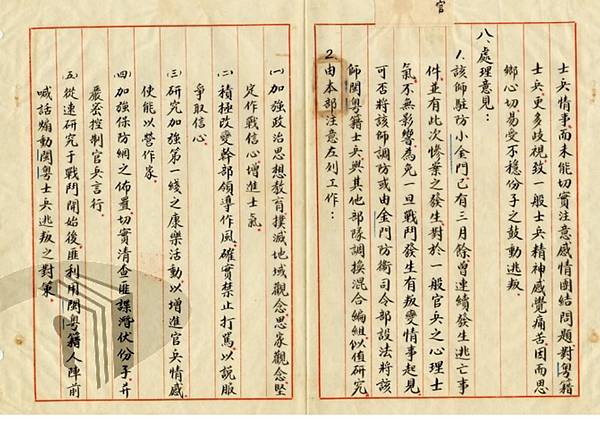 官
士兵情事而未能切實注意感情團結問題對粵籍
士兵更多歧視致一般士兵精神感覺痛苦因而思
鄉心切易受不穩份子之鼓動逃叛
八、處理意見：
1. 該師駐防小金門已有三月餘曾連續發生逃亡事
件並有此次慘案之發生對於一般官兵之心理士
氣不無影響為免一旦戰鬥發生有叛變情事起見
可否將該師調防或由金門防衛司令部設法將該
師閩粵籍士兵與其他部隊調換混合編組似值研究
2. 由本部注意左列工作：
㈠加強政治思想教育撲滅地域觀念思家觀念堅
定作戰信心增進士氣
㈡積極改變幹部領導作風確實禁止打罵以説服
爭取信心
㈢研究加強第一綫之康樂活動以增進官兵情感
使能以營作家
㈣加強保防網之佈置切實清查匪諜潛伏份子并
嚴密控制官兵言行
㈤從速研究于戰鬥開始後匪利用閩粵籍人陣前
喊話煽動閩粵士兵逃叛之對策